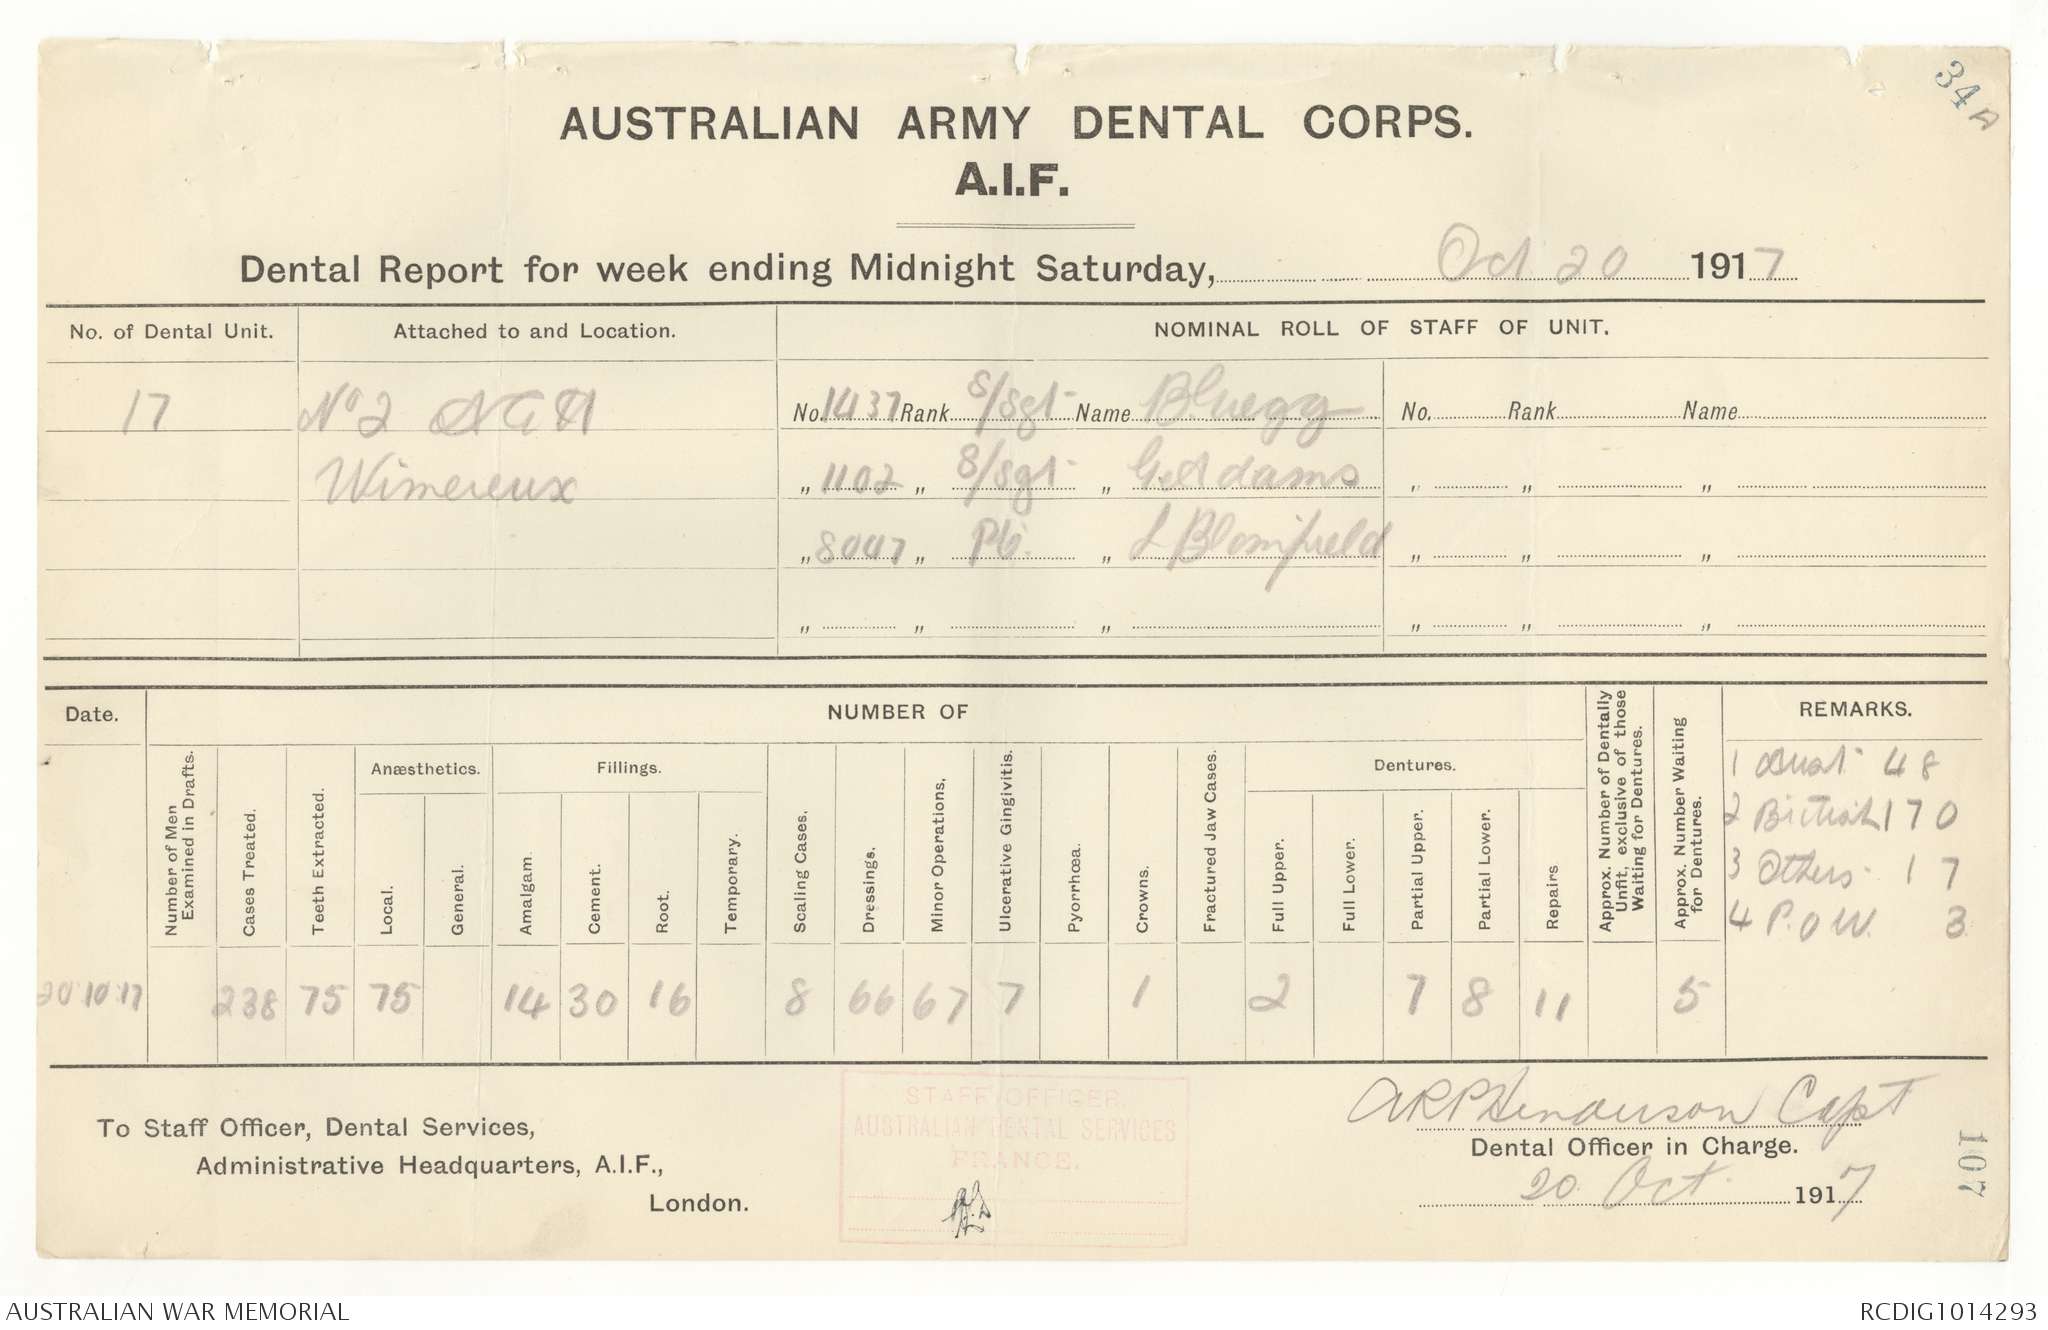 34A
AUSTRALIAN ARMY DENTAL CORPS.
A.I.F.
Dental Report for week ending Midnight Saturday, Oct 20 1917
No. of Dental Unit. Attached to and Location. NOMINAL ROLL OF STAFF OF UNIT.
17 No 2 AGH No. 1437 Rank S/Sgt Name No. Rank Name
Wimereux " 1102 " S/Sgt " " " "
" 8047 " Pte " L Blomfield " " "
" " " " " "
Date. NUMBER OF REMARKS.
Number of Men Examined in Drafts.
Cases Treated.
Teeth Extracted.
Anæsthetics.
Local.
General.
Fillings.
Amalgam.
Cement.
Root.
Temporary.
Scaling Cases.
Dressings.
Minor Operations.
Ulcerative Gingivitis.
Pyorrhœa.
Crowns.
Fractured Jaw Cases.
Dentures.
Full Upper.
Full Lower.
Partial Upper.
Partial Lower.
Repairs
Approx. Number of Dentally Unfit, exclusive of those Waiting for Dentures.
Approx. Number Waiting for Dentures.
1 Aust 48
2 British 170
3 Others 17
4 P.O.W. 3
20.10.17 238 75 75 14 30 16 8 66 67 7 1 2 7 8 11 5
To Staff Officer, Dental Services,
Administrative Headquarters, A.I.F.,
London.
STAFF OFFICER.
AUSTRALIAN DENTAL SERVICES
FRANCE.
ARP Henderson Capt
Dental Officer in Charge.
20 Oct. 1917
107
AUSTRALIAN WAR MEMORIAL RCDIG1014293